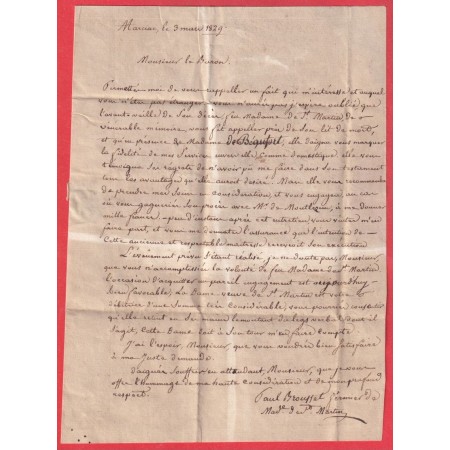 Marciac, le 3 mars 1829.
Monsieur le Baron.
Permettez moi de vous rappeller un fait qui m'intéresse et auquel
vous n'êtes pas étranger, vous n'aurez pas j'espère oublié que
l'avant veille de son décès, feu Madame de St. Martin de
vénérable mémoire, vous fit appeller près de son lit de mort,
et qu'en présence de Madame De Béguisel, elle daigna vous marquer
la fidélité de mes Services envers elle Comme domestique elle vous
témoigna ses regrets de n'avoir pu me faire dans son testament
les avantages qu'elle aurait désiré. Mais elle vous recommanda
de prendre mes Soins en considération, et vous engagea au cas
où vous gagneriez son procès avec Mr. de Montlezun, à me donner
mille francs. peu d'instans après cet entretien vous voulutes m'en
faire part, et vous me donnâtes l'assurance que l'intention de
Cette ancienne et respectable maitresse recevrait son exécution
L'événement prévu s'étant réalisé, je ne doute pas, Monsieur
que vous n'accomplissiez la volonté de feu Madame de St. Martin.
L'occasion d'acquitter un pareil engagement est aujourd'huy
bien favorable. La Dame veuve de St. Martin est votre
débitrice d'une Somme très considérable, vous pourriez
qu'elle retint en Ses mains le montant du legs verbal dont il
S'agit, Cette Dame doit à Son tour m'en faire Compte.
J'ai l'espoir, Monsieur, que vous voudrez bien satisfaire
à ma juste demande.
Daignez Souffrir en attendant, Monsieur, que je vous
offre l'hommage de ma haute considération et de mon profond
respect.
Paul Brousset
Made. de St. Martin